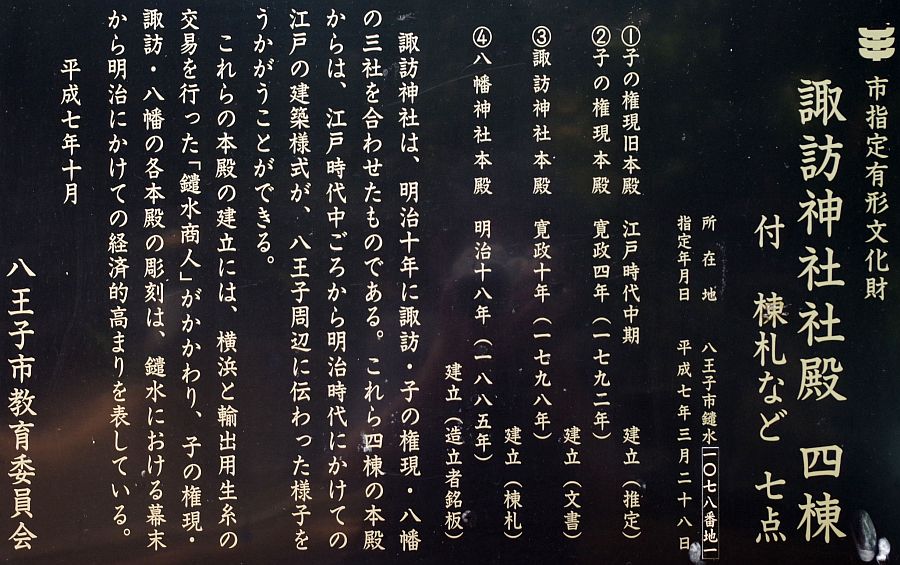 市指定有形文化財
諏訪神社社殿 四棟
付 棟札など 七点
所在地 八王子市鑓水一〇七八番地一
指定年月日 平成七年三月二十八日
①子の権現旧本殿 江戸時代中期 建立(推定)
②子の権現本殿 寛政四年(一七九二年)
建立(文書)
③諏訪神社本殿 寛政十年(一七九八年)
建立(棟札)
④八幡神社本殿 明治十八年(一八八五年)
建立(造立者銘板)
諏訪神社は、明治十年に諏訪・子の権現・八幡
の三社を合わせたものである。これら四棟の本殿
からは、江戸時代中ごろから明治時代にかけての
江戸の建築様式が、八王子周辺に伝わった様子を
うかがうことができる。
これらの本殿の建立には、横浜と輸出用生糸の
交易を行った「鑓水商人」がかかわり、子の権現・
諏訪・八幡の各本殿の彫刻は、鑓水における幕末
から明治にかけての経済的高まりを表している。
平成七年十月
八王子市教育委員会